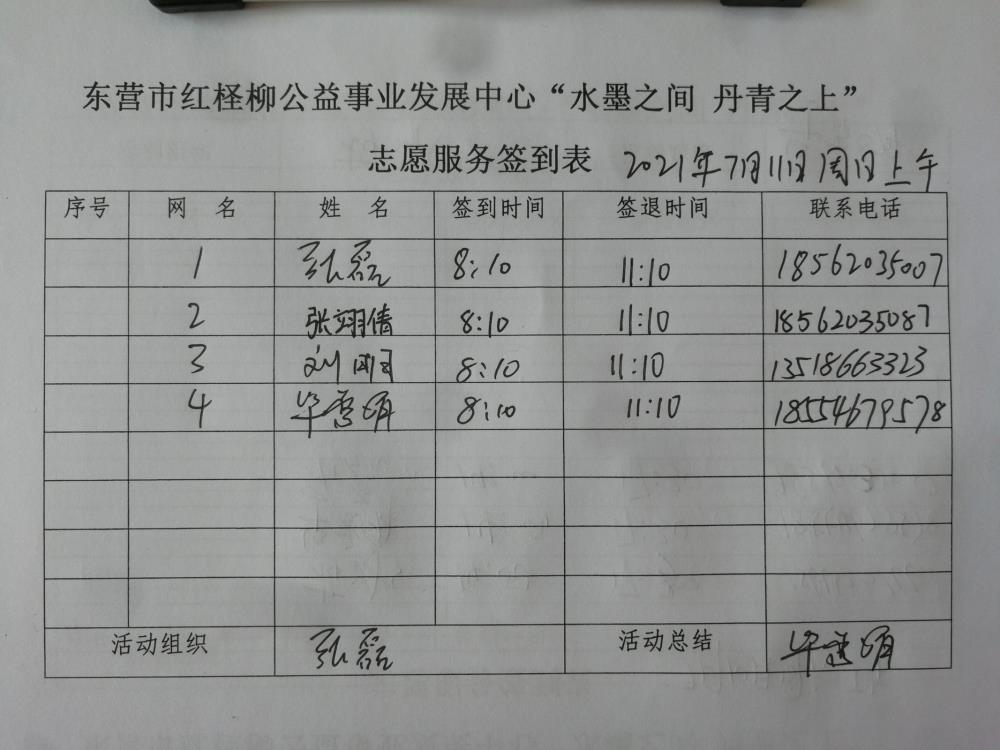 东营市红柽柳公益事业发展中心“水墨之间 丹青之上”
志愿服务签到表 2021年7月11日周日上午
序号 网 名 姓 名 签到时间 签退时间 联系电话
1 张磊 8:10 11:10 18562035007
2 张翊倩 8:10 11:10 18562035087
3 刘明 8:10 11:10 13518663323
4 毕 明 8:10 11:10 18554679578
活动组织 张磊 活动总结 毕 明